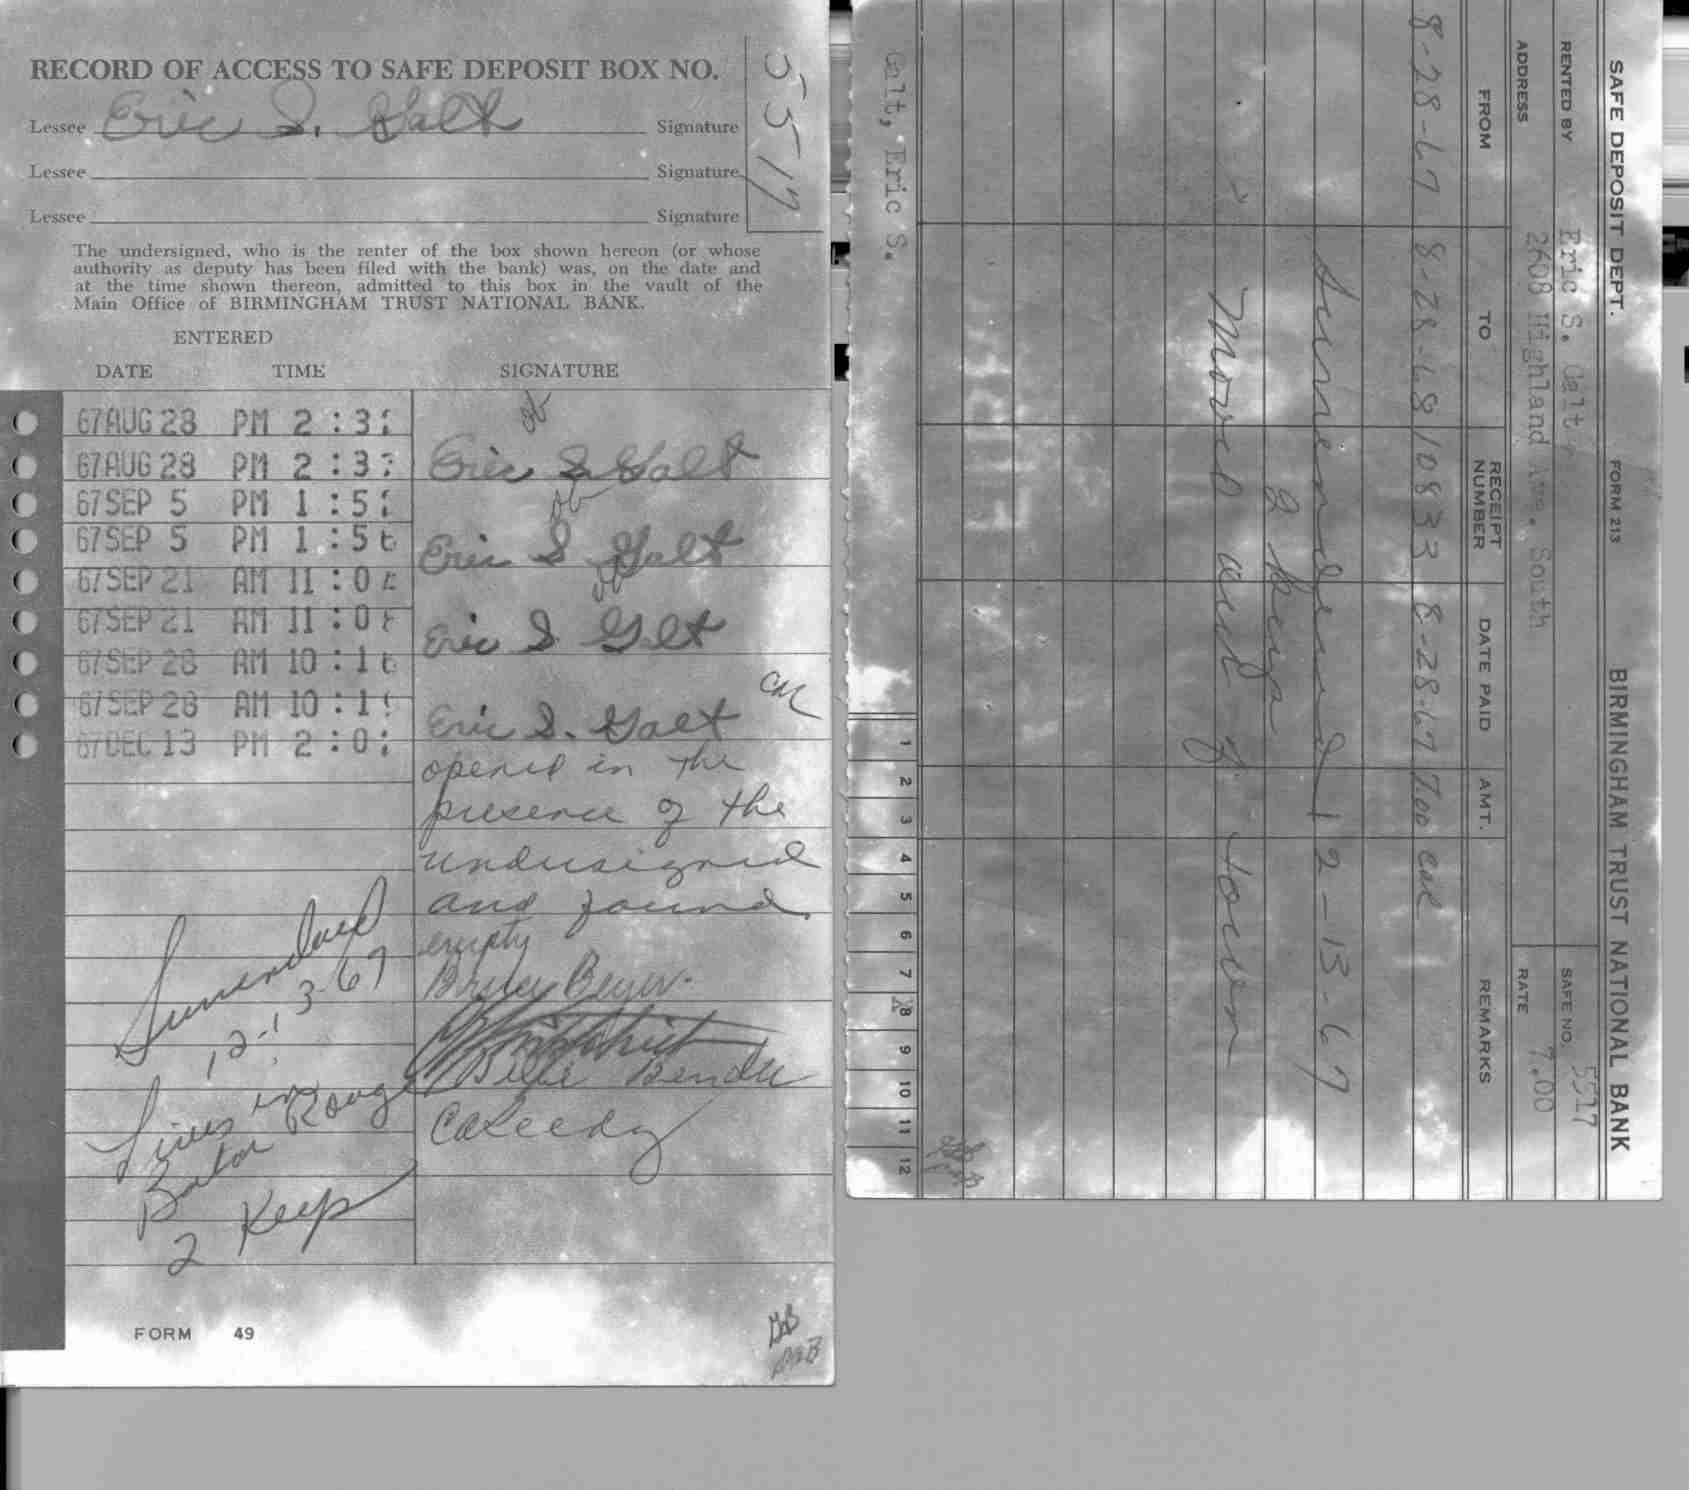 RECORD OF ACCESS TO SAFE DEPOSIT BOX NO. 5517
Lessee Eric S. Galt Signature
Lessee Signature
Lessee Signature
The undersigned, who is the renter of the box shown hereon (or whose
authority as deputy has been filed with the bank) was, on the date and
at the time shown thereon, admitted to this box in the vault of the
Main Office of BIRMINGHAM TRUST NATIONAL BANK.
ENTERED
DATE TIME SIGNATURE
67 AUG 28 PM 2:3
67 AUG 28 PM 2:3 Eric S. Galt
67 SEP 5 PM 1:5
67 SEP 5 PM 1:56 Eric S Galt
67 SEP 21 AM 11:0
67 SEP 21 AM 11:0 Eric S Galt
67 SEP 28 AM 10:16
67 SEP 28 AM 10:1 Eric S. Galt
67 DEC 13 PM 2:0
opened in the
presence of the
undersigned
and found
empty
Surrendered
12-13-67
Lives in
Baton Rouge
2 Keys
FORM 49
SAFE DEPOSIT DEPT. FORM 213 BIRMINGHAM TRUST NATIONAL BANK
RENTED BY Eric S. Galt SAFE NO. 5517
ADDRESS 2608 Highland Ave. South RATE 7.00
FROM TO RECEIPT NUMBER DATE PAID AMT. REMARKS
8-28-67 8-28-68 10833 8-28-67 7.00
Surrendered 12-13-67
2 keys
Moved out of town
Galt, Eric S. 1 2 3 4 5 6 7 8 9 10 11 12